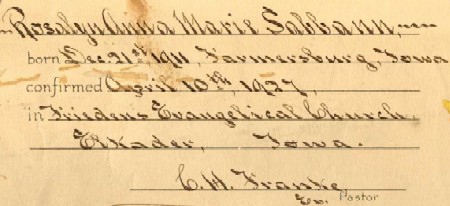 Rosalyn Anna Marie Sabbann,
born Dec. 21st 1911, Farmersburg, Iowa
confirmed April 10th, 1927,
in Friedens Evangelical Church,
Elkader, Iowa.
C. H. Franke,
Ev. Pastor